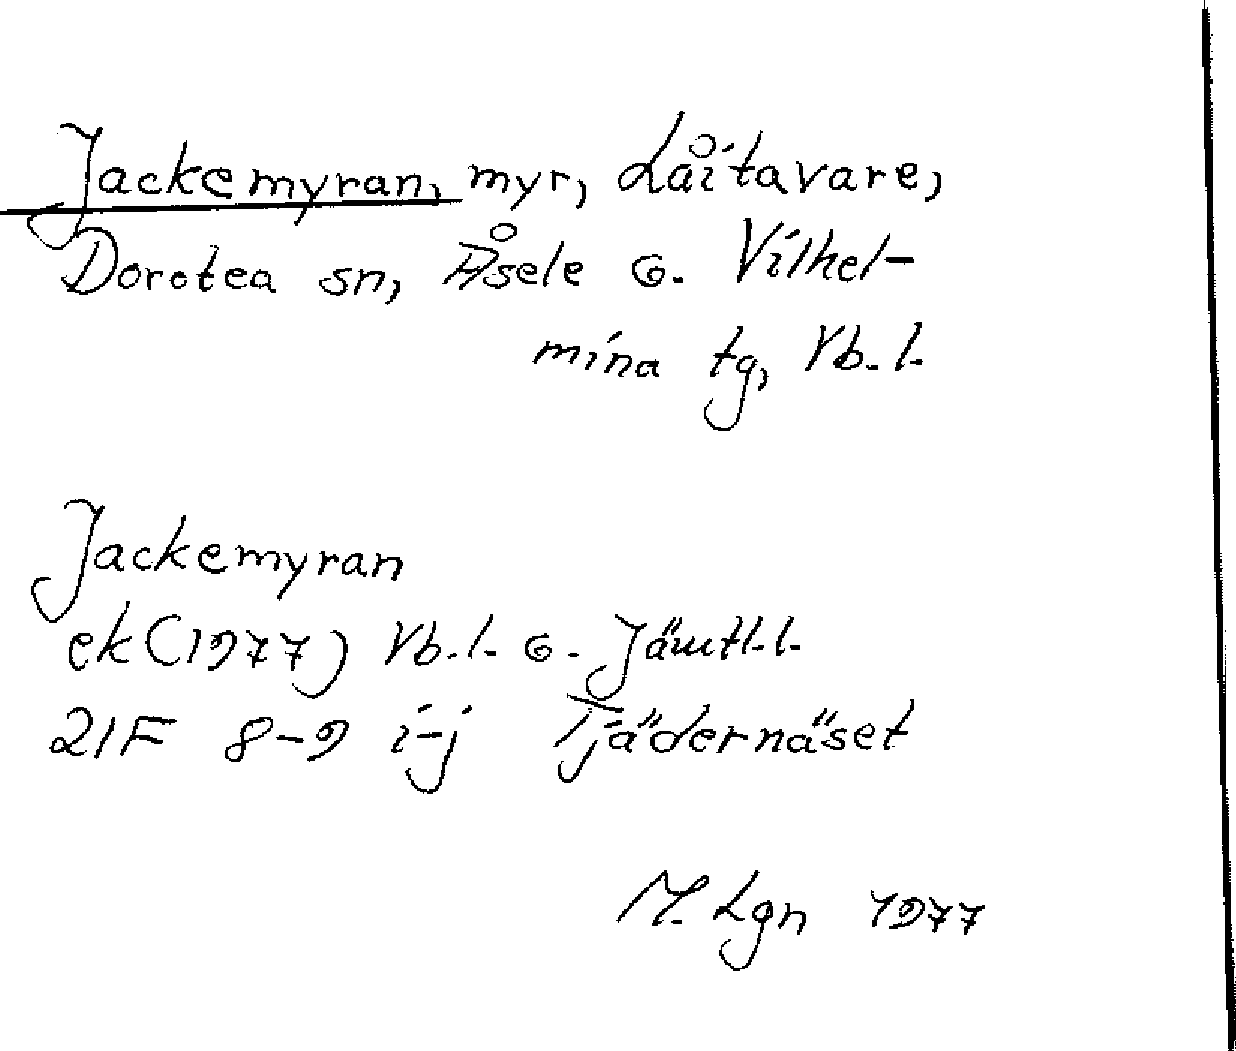 Jackemyran, myr, Låitavare,
Dorotea sn, Åsele o. Vilhel-
mina tg, Vb. l.
Jackemyran
ek (1977) Vb. l. o. Jämtl. l.
21F 8-9 i-j Tjädernäset
M. Lgn 1977